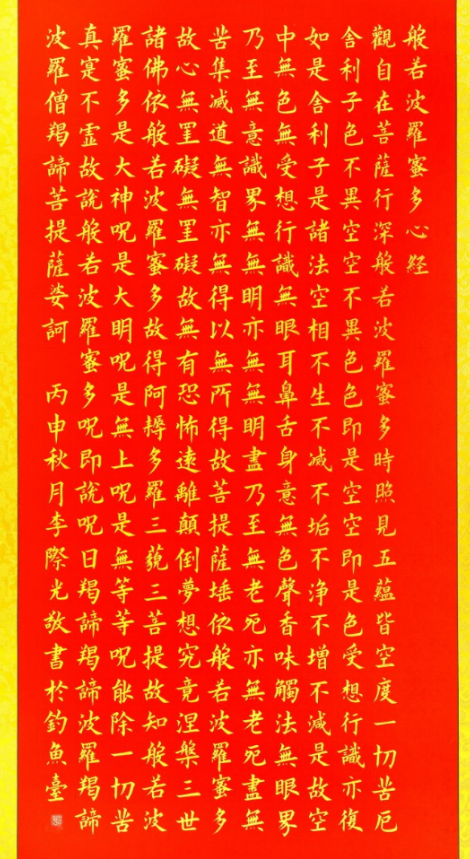 般若波羅蜜多心經
觀自在菩薩行深般若波羅蜜多時照見五蘊皆空度一切苦厄
舍利子色不異空空不異色色即是空空即是色受想行識亦復
如是舍利子是諸法空相不生不滅不垢不净不增不減是故空
中無色無受想行識無眼耳鼻舌身意無色聲香味觸法無眼界
乃至無意識界無無明亦無無明盡乃至無老死亦無老死盡無
苦集滅道無智亦無得以無所得故菩提薩埵依般若波羅蜜多
故心無罣礙無罣礙故無有恐怖遠離顛倒夢想究竟涅槃三世
諸佛依般若波羅蜜多故得阿耨多羅三藐三菩提故知般若波
羅蜜多是大神呪是大明呪是無上呪是無等等呪能除一切苦
真寔不虛故說般若波羅蜜多呪即說呪曰羯諦羯諦波羅羯諦
波羅僧羯諦菩提薩婆訶 丙申秋月李際光敬書於釣魚臺